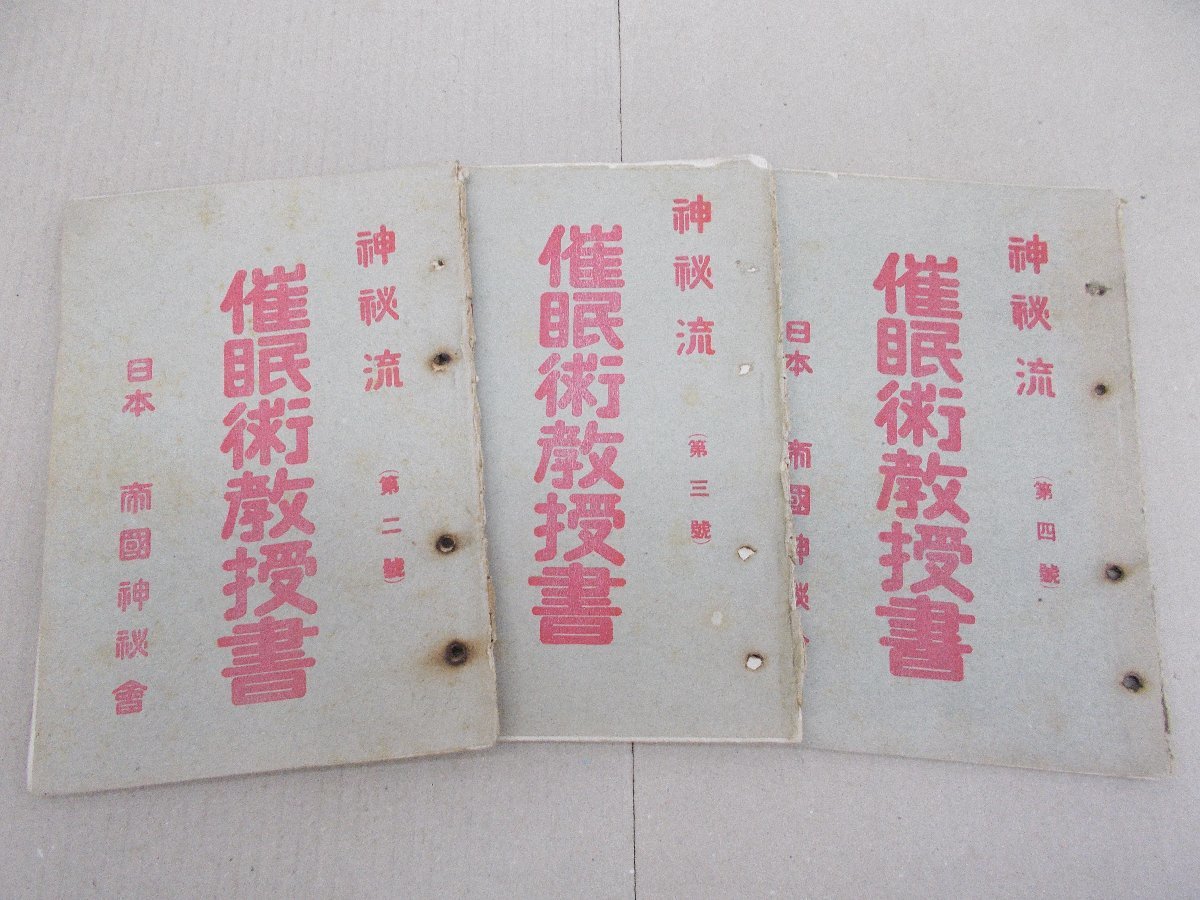 神秘流
(第二號)
催眠術教授書
日本 帝國神秘會
神秘流
(第三號)
催眠術教授書
神秘流
(第四號)
催眠術教授書
日本 帝國神秘